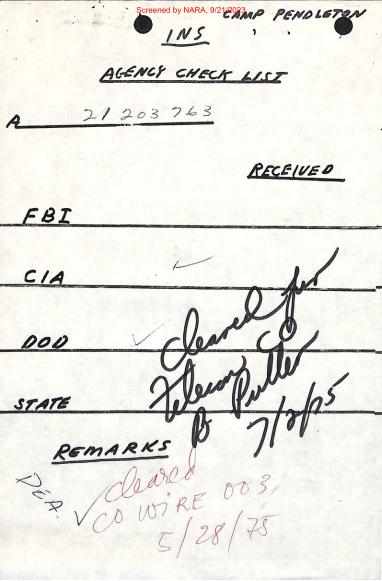 Screened by NARA, 9/21/2023
CAMP PENDLETON
INS
AGENCY CHECK LIST
A 21 203 763
RECEIVED
FBI
CIA ✓
DOD ✓
STATE
cleared per
telecon CO
B Puller
7/2/75
REMARKS
DEA. ✓ cleared
CO WIRE 003
5/28/75